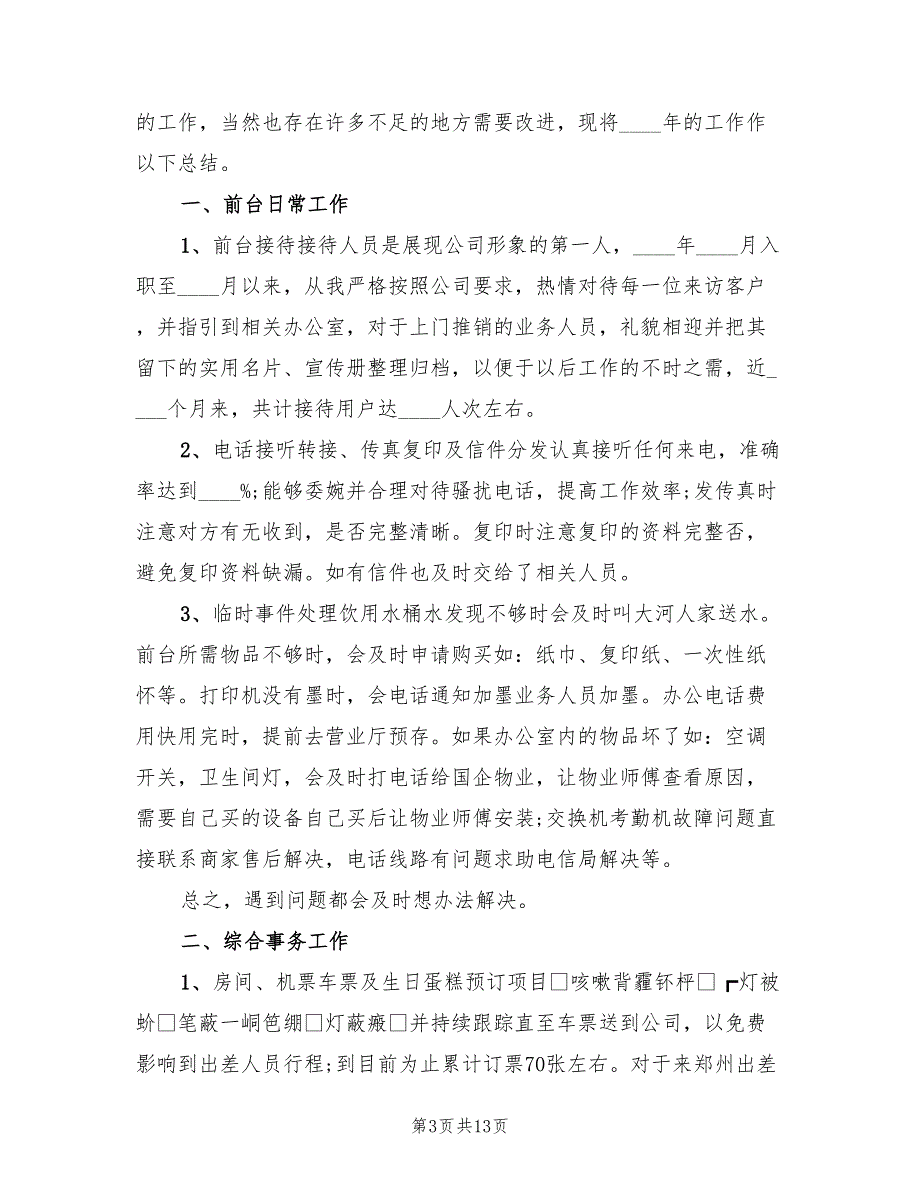 的工作，当然也存在许多不足的地方需要改进，现将____年的工作作
以下总结。
一、前台日常工作
1、前台接待接待人员是展现公司形象的第一人，____年____月入
职至____月以来，从我严格按照公司要求，热情对待每一位来访客户
，并指引到相关办公室，对于上门推销的业务人员，礼貌相迎并把其
留下的实用名片、宣传册整理归档，以便于以后工作的不时之需，近_
___个月来，共计接待用户达____人次左右。
2、电话接听转接、传真复印及信件分发认真接听任何来电，准确
率达到____%;能够委婉并合理对待骚扰电话，提高工作效率;发传真时
注意对方有无收到，是否完整清晰。复印时注意复印的资料完整否，
避免复印资料缺漏。如有信件也及时交给了相关人员。
3、临时事件处理饮用水桶水发现不够时会及时叫大河人家送水。
前台所需物品不够时，会及时申请购买如：纸巾、复印纸、一次性纸
怀等。打印机没有墨时，会电话通知加墨业务人员加墨。办公电话费
用快用完时，提前去营业厅预存。如果办公室内的物品坏了如：空调
开关，卫生间灯，会及时打电话给国企物业，让物业师傅查看原因，
需要自己买的设备自己买后让物业师傅安装;交换机考勤机故障问题直
接联系商家售后解决，电话线路有问题求助电信局解决等。
总之，遇到问题都会及时想办法解决。
二、综合事务工作
1、房间、机票车票及生日蛋糕预订项目□咳嗽背霾钚枰□┏灯被
蚧□笔蔽一峒笆绷□灯蔽瘢□并持续跟踪直至车票送到公司，以免费
影响到出差人员行程;到目前为止累计订票70张左右。对于来郑州出差
第3页共13页